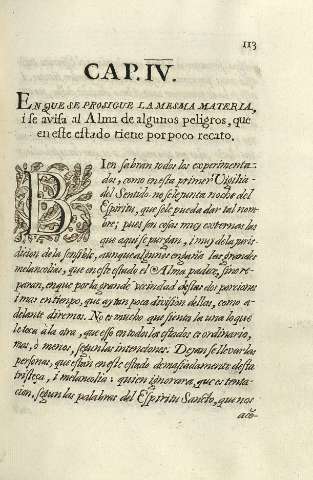 113
CAP. IV.
EN QUE SE PROSIGUE LA MESMA MATERIA,
i se avisa al Alma de algunos peligros, que
en este estado tiene por poco recato.
BIen sabran todos los experimenta-
dos, como en esta primer Vigilia
del Sentido no se le junta noche del
Espiritu, que se le pueda dar tal nom-
bre; pues son cosas muy externas las
que aqui se purgan, i muy de la juris-
dicion de lo sensible, aunque algunos engaña las grandes
melancolias, que en este estado el Alma padece, sino re-
paran, en que por la grande vicindad destas dos porciones
i mas en tiempo, que ay tan poca division dellas, como a-
delante diremos. No es mucho que sienta la una lo que
le toca à la otra, que esso en todos los estados es ordinario,
mas, ò menos, segun las intenciones. Dejanse llevar las
personas, que estàn en este estado demasiadamente desta
tristeça, i melancolia: quien ignorara, que es tenta-
cion, segun las palabras del Espiritu Sancto, que nos
aco-